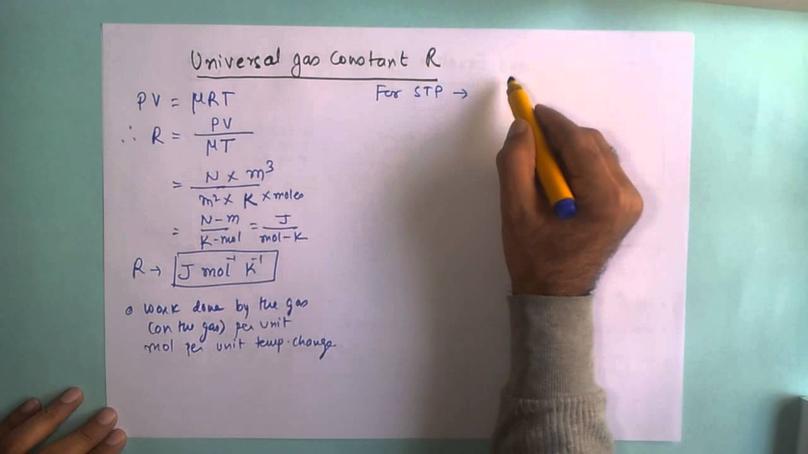 Universal gas Constant R
PV = μRT
For STP →
∴ R = PV / μT
= N × m³ / m² × K × moles
= N-m / K-mol = J / mol-K
R → J mol⁻¹ K⁻¹
work done by the gas
(on the gas) per unit
mol per unit temp. change